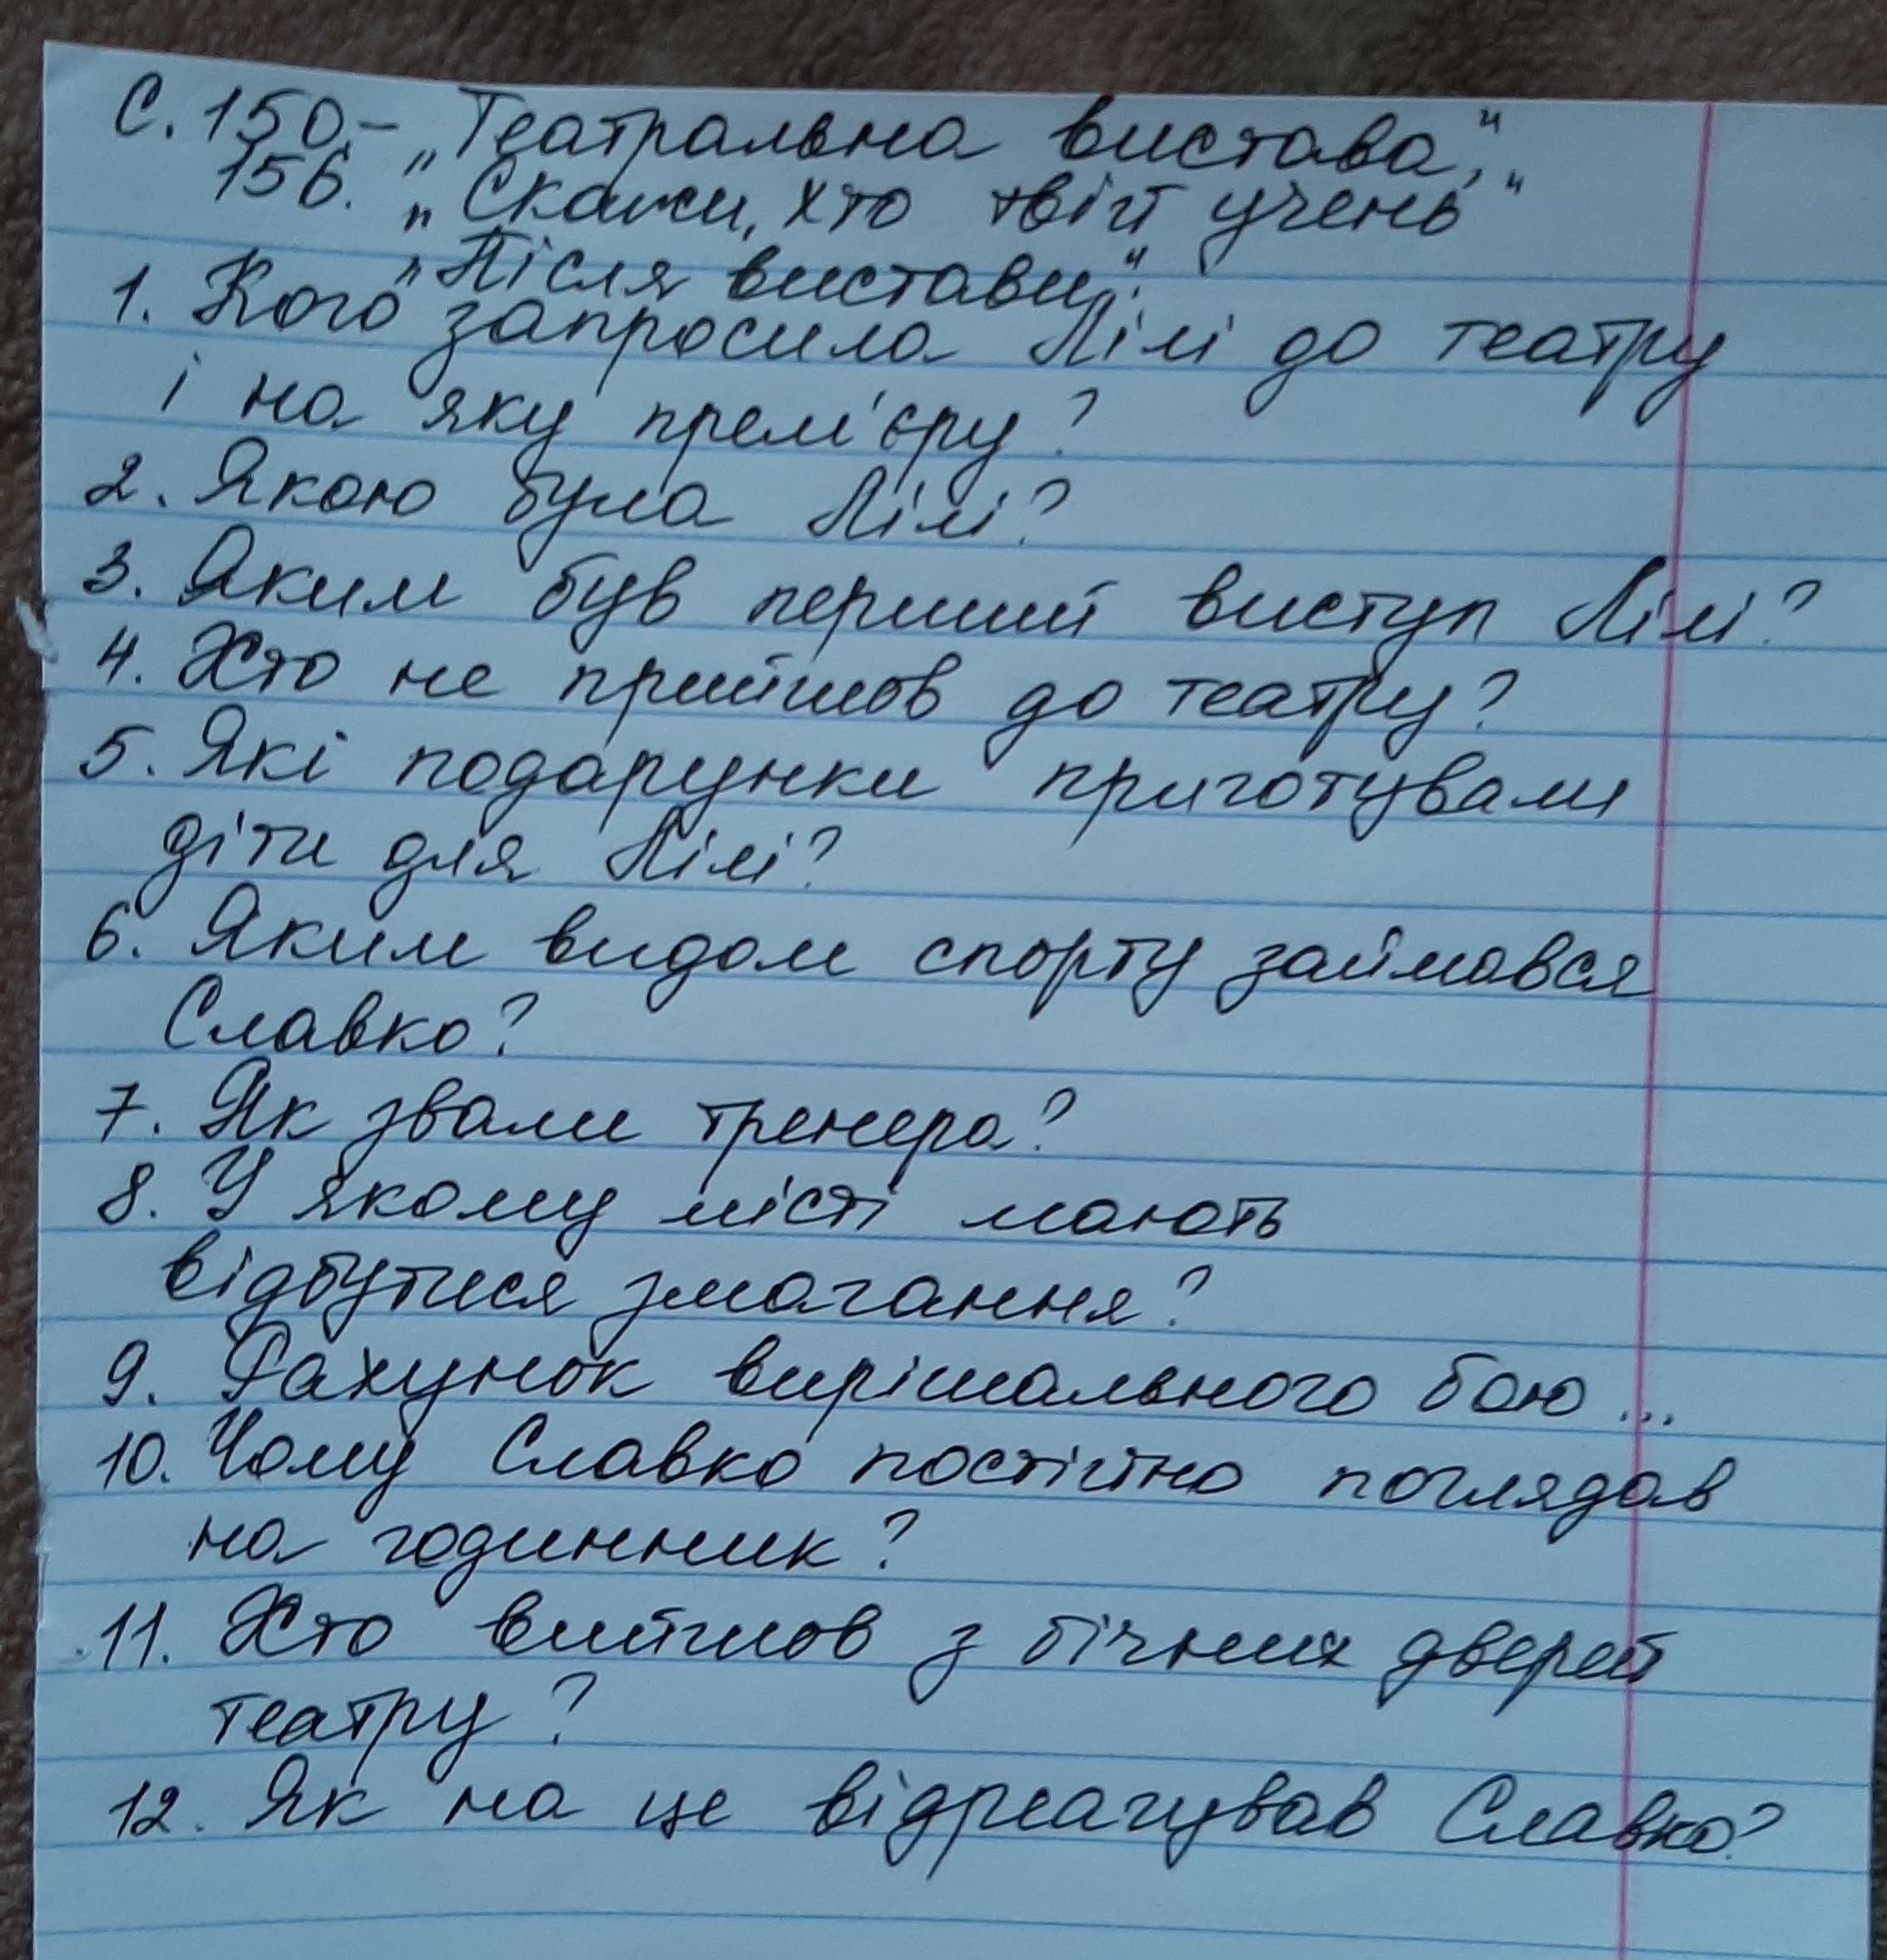 С. 150.- „Театральна вистава",
156. „Скажи, хто твій учень",
„Після вистави".
1. Кого запросила Лілі до театру
і на яку прем'єру?
2. Якою була Лілі?
3. Яким був перший виступ Лілі?
4. Хто не прийшов до театру?
5. Які подарунки приготували
діти для Лілі?
6. Яким видом спорту займався
Славко?
7. Як звали тренера?
8. У якому місті мають
відбутися змагання?
9. Рахунок вирішального бою...
10. Чому Славко постійно поглядав
на годинник?
11. Хто вийшов з бічних дверей
театру?
12. Як на це відреагував Славко?